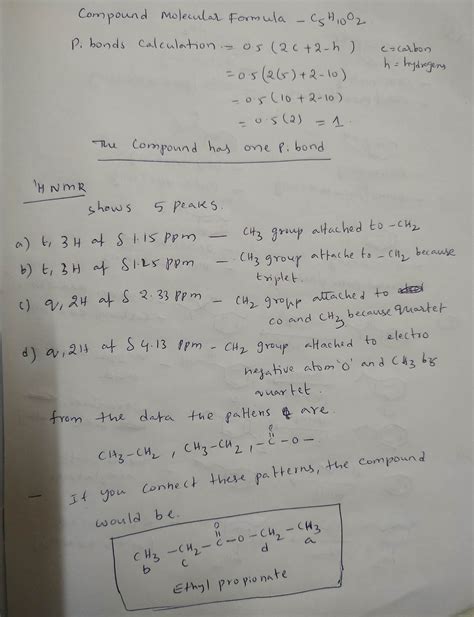 Compound Molecular Formula - C5H10O2
P. bonds Calculation = 0.5 (2c+2-h) c=carbon
h = hydrogens
= 0.5 (2(5)+2-10)
= 0.5 (10+2-10)
= 0.5 (2) = 1.
The Compound has one P. bond
'H NMR
shows 5 peaks.
a) t, 3H at δ 1.15 ppm — CH3 group attached to -CH2
b) t, 3H at δ 1.25 ppm — CH3 group attache to -CH2 because
triplet.
c) q, 2H at δ 2.33 ppm — CH2 group attached to
co and CH3 because quartet
d) q, 2H at δ 4.13 ppm - CH2 group attached to electro
negative atom 'O' and CH3 by
quartet.
from the data the pattens are.
CH3-CH2, CH3-CH2, -C-O-
O
- If you connect these patterns, the compound
would be.
O
CH3-CH2-C-O-CH2-CH3
b c d a
Ethyl propionate